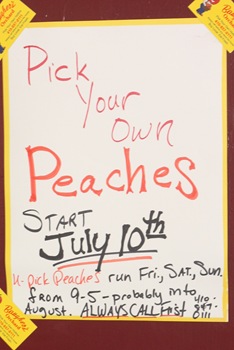 Pick
Your
Own
Peaches
START
July 10th
U-Pick Peaches run Fri., SAT., Sun.
from 9-5 - probably into
August. ALWAYS CALL First
410-